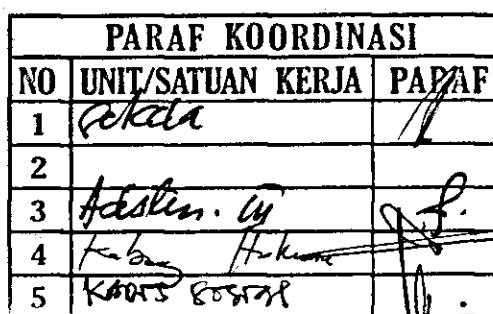 PARAF KOORDINASI
NO UNIT/SATUAN KERJA PARAF
1 Sekda
2
3 Asisten. III
4 Kabag Hukum
5 KADIS SOSIAL